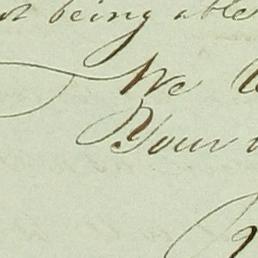 being able
We
Your